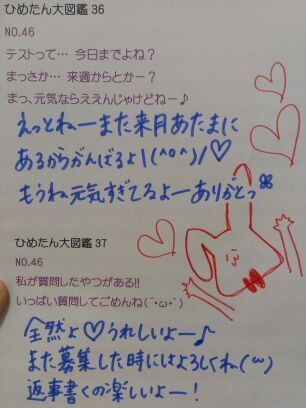 ひめたん大図鑑 36
NO.46
テストって… 今日までよね?
まっさか… 来週からとかー?
まっ、元気ならええんじゃけどねー♪
えっとねーまた来月あたまに
あるからがんばるよ!(^o^)/♡
もうね元気すぎてるよーありがとっ
ひめたん大図鑑 37
NO.46
私が質問したやつがある!!
いっぱい質問してごめんね(´・ω・`)
全然よ♡うれしいよー♪
また募集した時にはよろしくね(´ω`)
返事書くの楽しいよー!